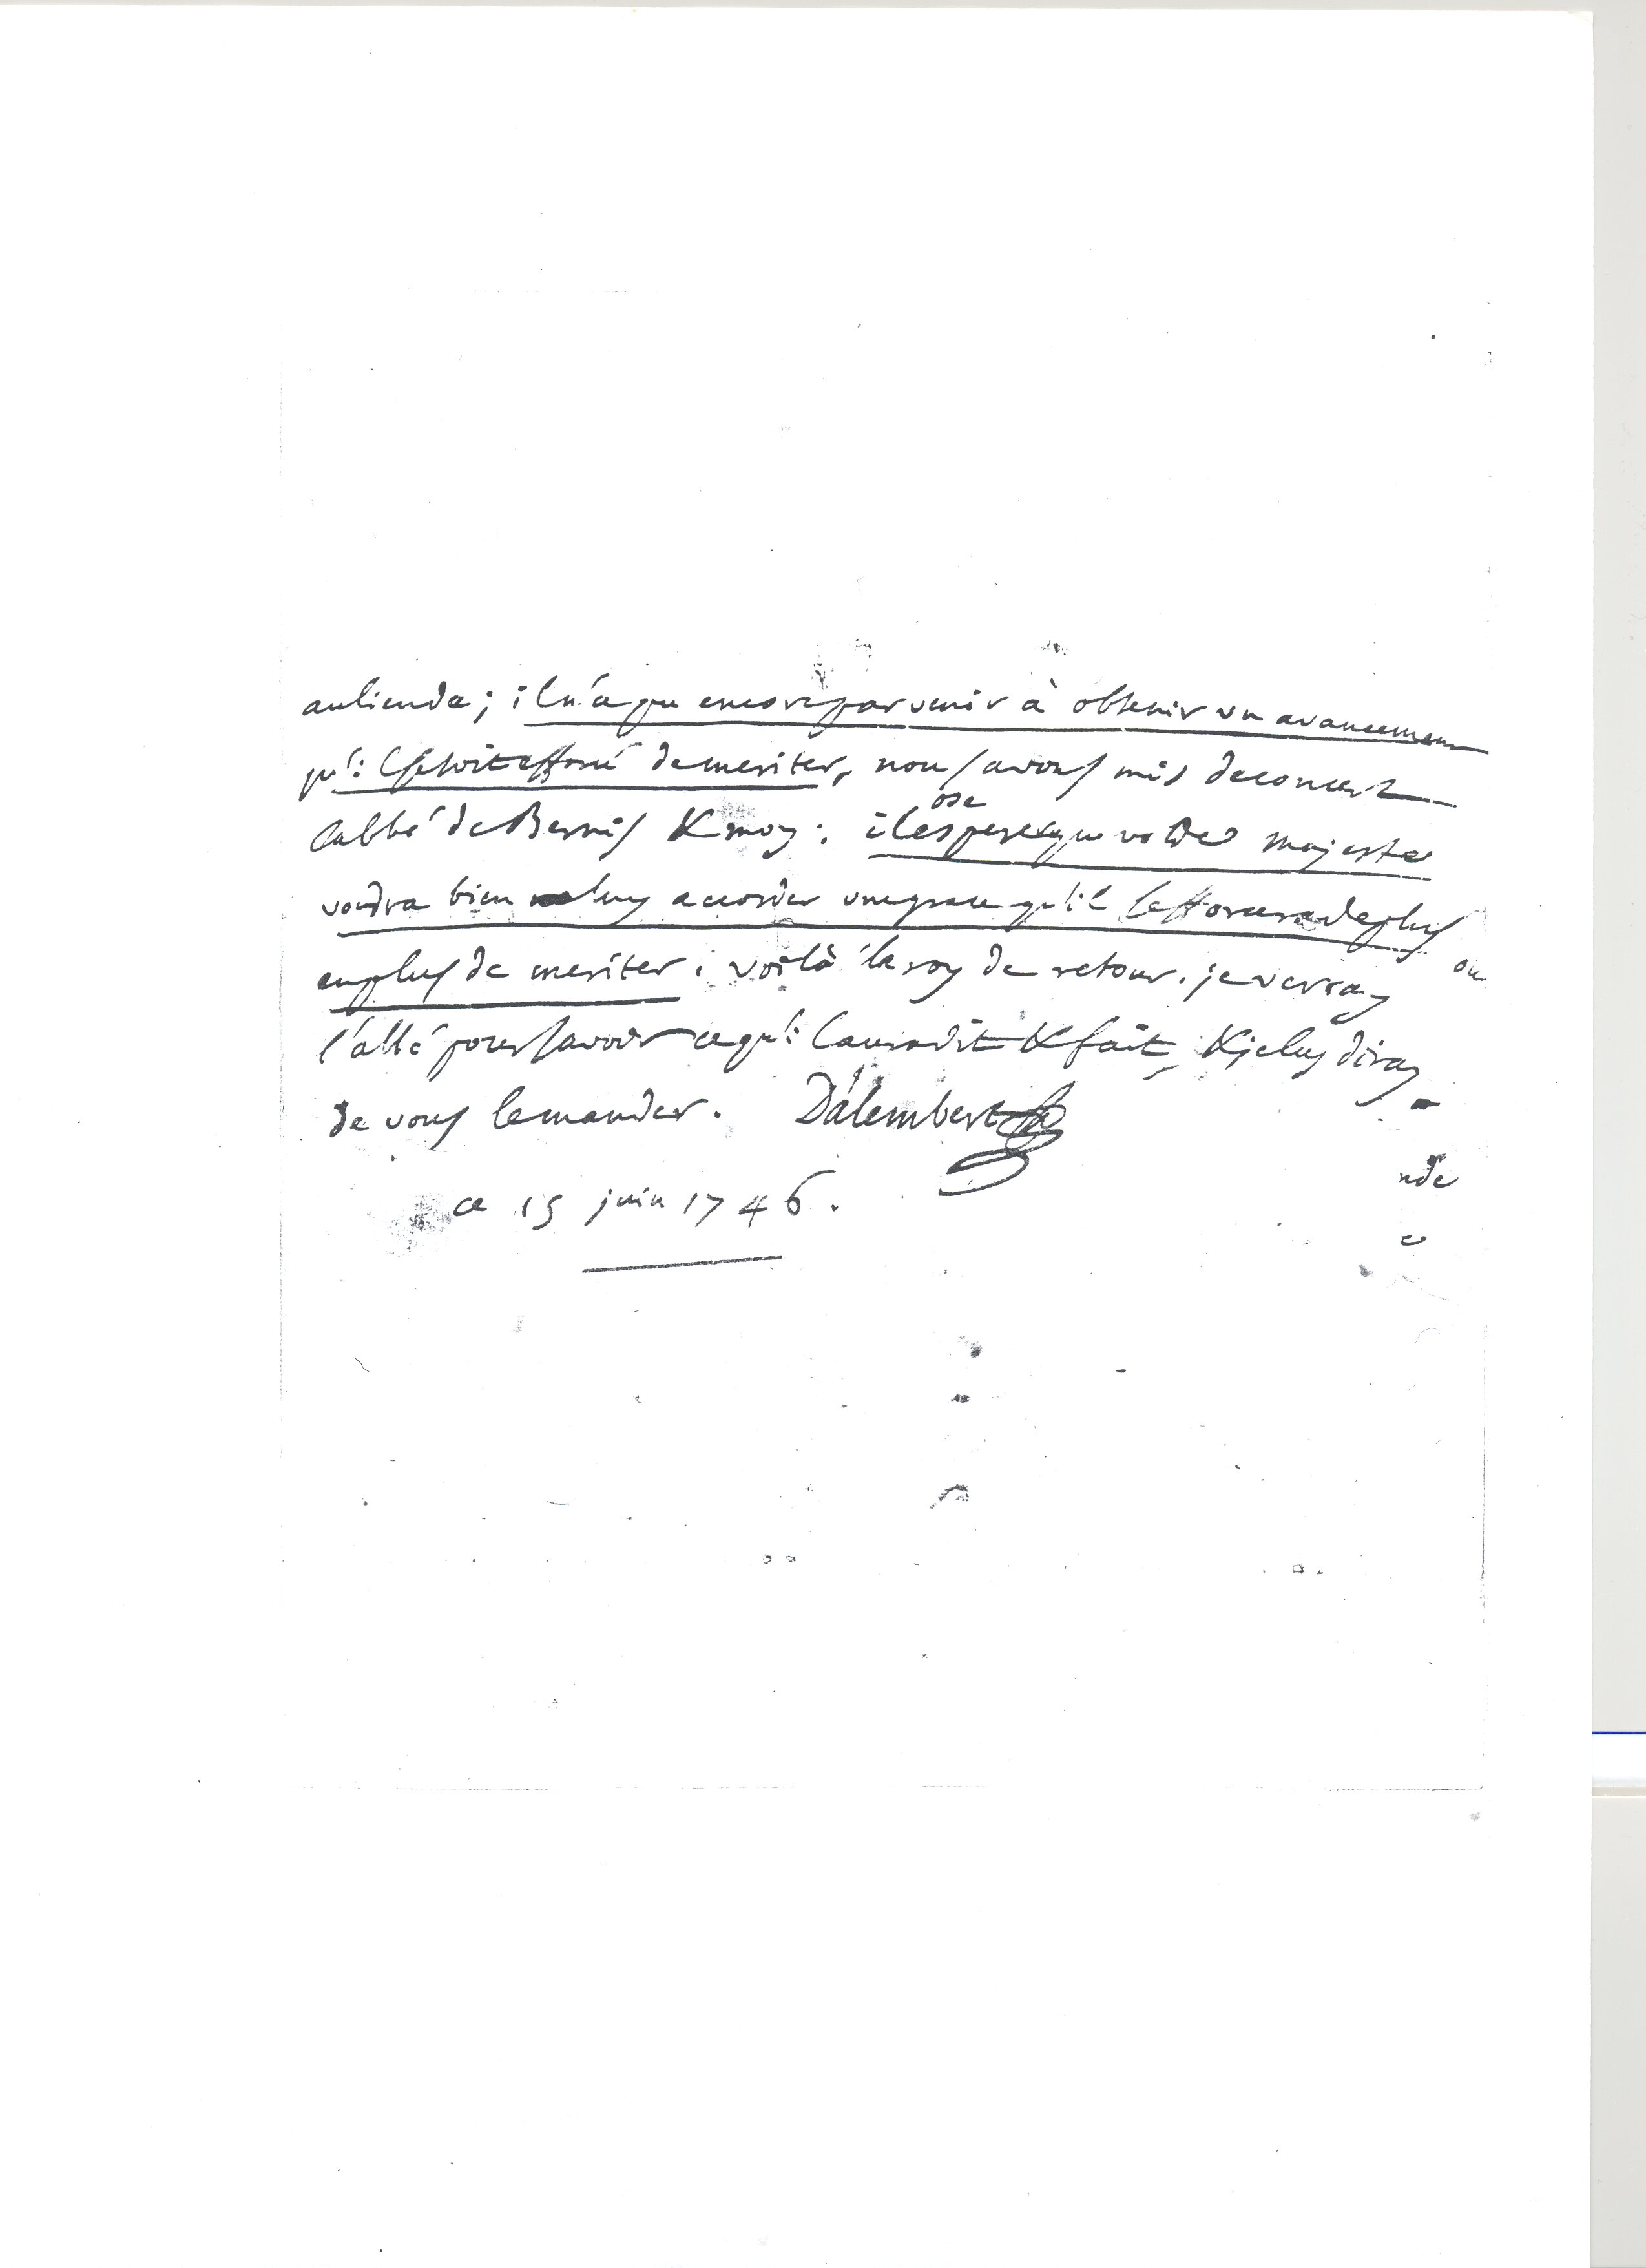 au lieu de ; il n'a pu encore parvenir à obtenir un avancement
qu'il s'etoit efforcé de meriter, nous avons mis de concert
l'abbé de Bernis & moy : il ose esperer que votre majesté
voudra bien luy accorder une grace qu'il s'efforcera de plus
en plus de meriter ; voilà le roy de retour. je verray
l'abbé pour savoir ce qu'il aura dit & fait, & je luy diray
de vous le mander. D'alembert
ce 15 juin 1746.
ou
nde